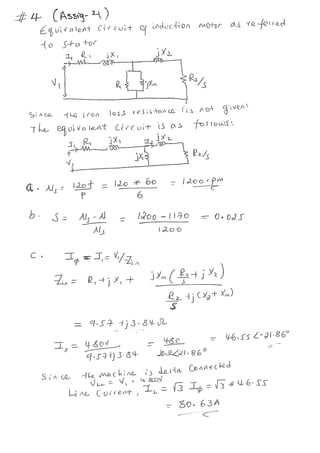 #4 (Assig-21)
Equivalent circuit of induction motor as referred
to stator
I1 R1 jX1 jX2
V1 Ri jXm R2/s
Since the iron loss resistance (is not given)
The equivalent circuit is as follows:
I1 R1 jX1 I2 jX2
V1 jXm R2/s
a. Ns = 120f/P = 120 * 60/6 = 1200 rpm
b. S = Ns - N/Ns = 1200 - 1170/1200 = 0.025
c. Iφ = I1 = V1/Zin
Zin = R1 + jX1 + jXm (R2/s + jX2)/R2/s + j(X2 + Xm)
= 9.57 + j3.84 Ω
I1 = 480V/9.57+j3.84 = 480/∠21.86° = 46.55 ∠-21.86°
Since the machine is delta connected
VLL = V1 = 480V
Line current, IL = √3 Iφ = √3 * 46.55
= 80.63A